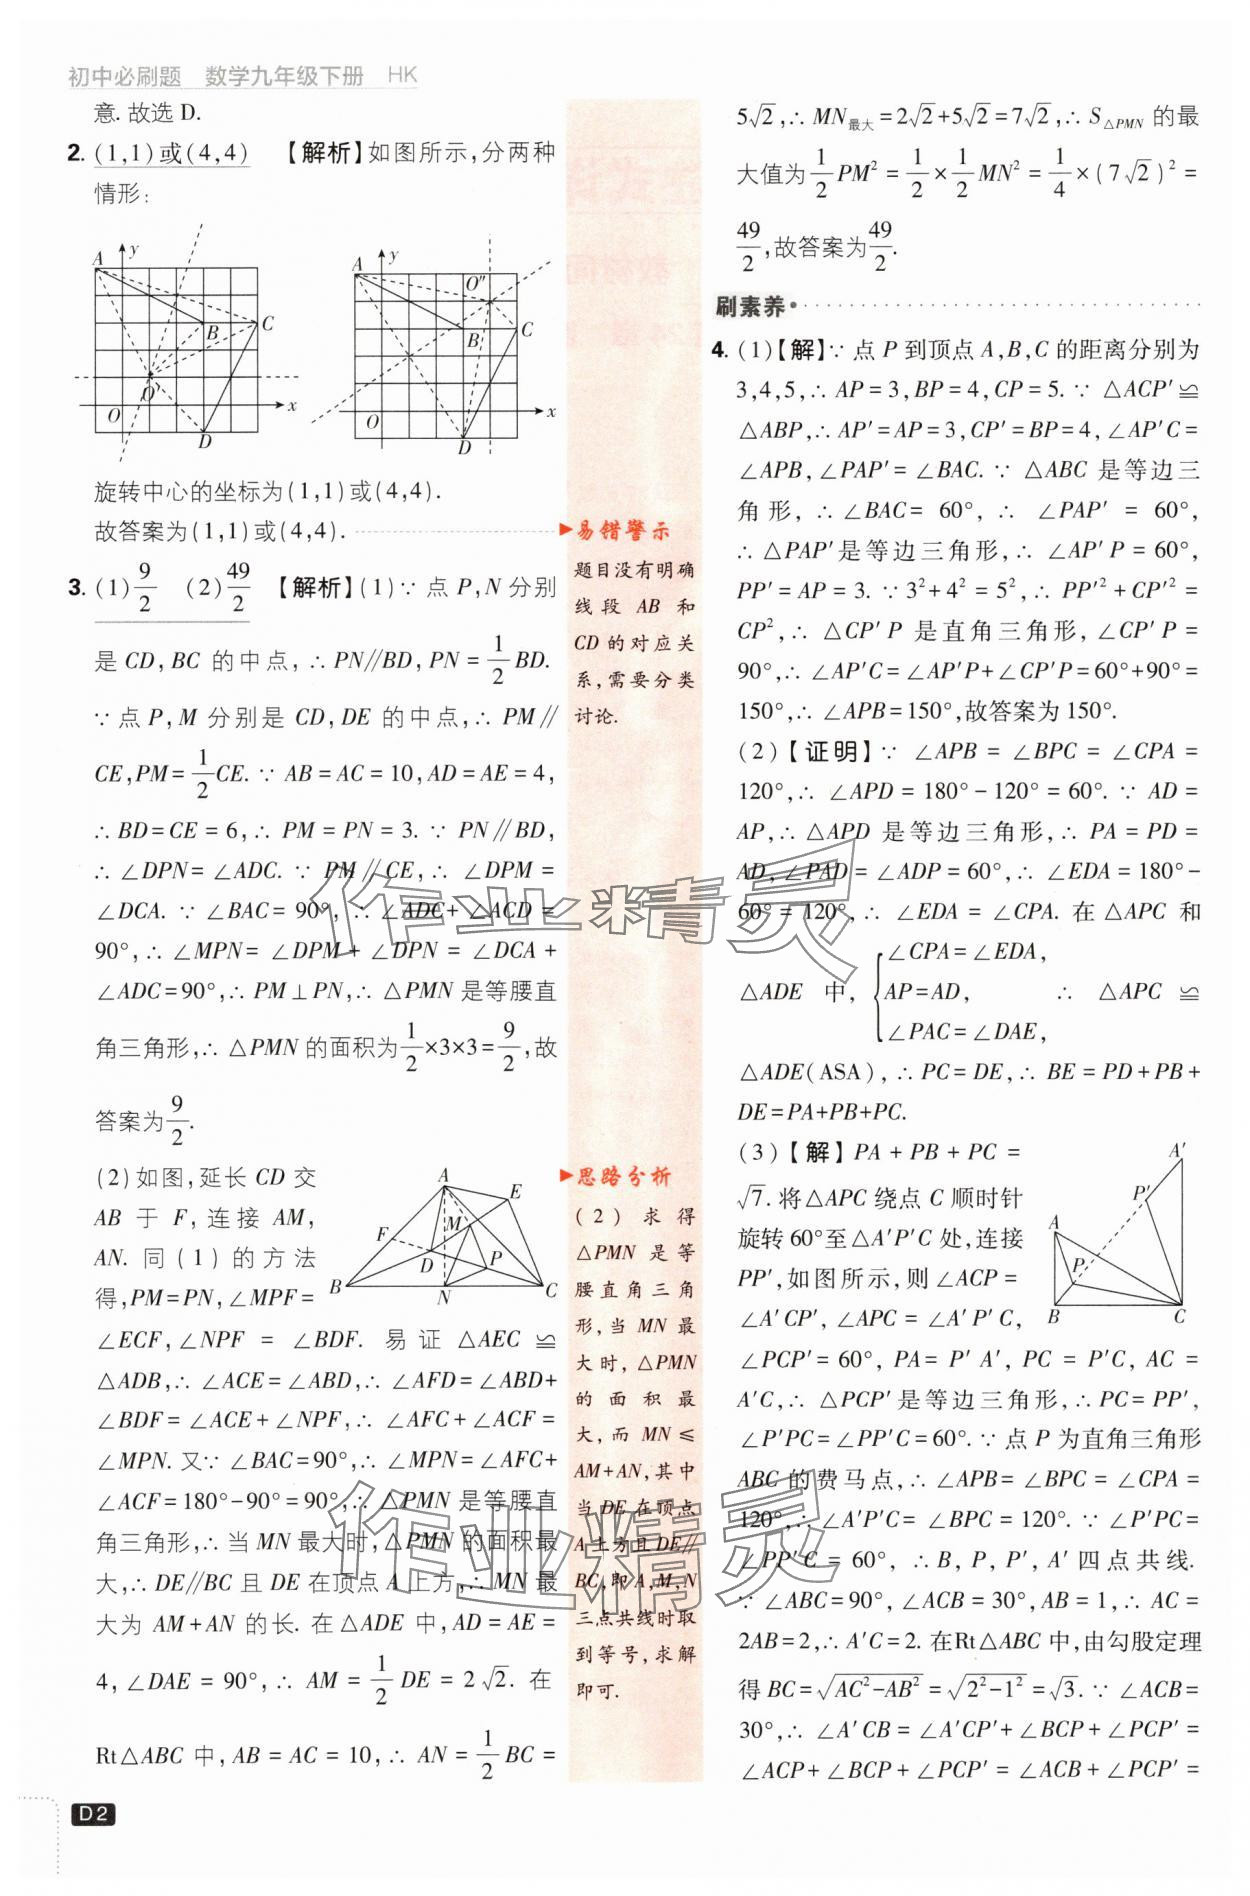 初中必刷题 数学九年级下册 HK
意. 故选 D.
2. (1,1)或(4,4) 【解析】如图所示,分两种
情形:
A y B C O' O D x
A y O″ B C O D x
旋转中心的坐标为(1,1)或(4,4).
故答案为(1,1)或(4,4).
3. (1)9/2 (2)49/2 【解析】(1)∵ 点 P,N 分别
是 CD,BC 的中点,∴ PN∥BD,PN = 1/2 BD.
∵ 点 P,M 分别是 CD,DE 的中点,∴ PM∥
CE,PM= 1/2 CE. ∵ AB = AC = 10,AD = AE = 4,
∴ BD=CE = 6,∴ PM = PN = 3. ∵ PN∥BD,
∴ ∠DPN= ∠ADC. ∵ PM∥CE,∴ ∠DPM =
∠DCA. ∵ ∠BAC= 90°, ∴ ∠ADC+ ∠ACD =
90°,∴ ∠MPN= ∠DPM + ∠DPN = ∠DCA +
∠ADC=90°,∴ PM⊥PN,∴ △PMN 是等腰直
角三角形,∴ △PMN 的面积为1/2×3×3=9/2,故
答案为9/2.
(2)如图,延长 CD 交
AB 于 F,连接 AM,
AN. 同(1)的方法
得,PM=PN,∠MPF=
A E M F D P B N C
∠ECF,∠NPF = ∠BDF. 易证 △AEC ≌
△ADB,∴ ∠ACE= ∠ABD,∴ ∠AFD= ∠ABD+
∠BDF = ∠ACE+ ∠NPF,∴ ∠AFC+ ∠ACF =
∠MPN. 又∵ ∠BAC=90°,∴ ∠MPN= ∠AFC+
∠ACF=180°-90°= 90°,∴ △PMN 是等腰直
角三角形,∴ 当 MN 最大时,△PMN 的面积最
大,∴ DE∥BC 且 DE 在顶点 A 上方,∴ MN 最
大为 AM+AN 的长. 在 △ADE 中,AD = AE =
4,∠DAE = 90°,∴ AM = 1/2 DE = 2√2. 在
Rt△ABC 中,AB = AC = 10,∴ AN = 1/2 BC =
D2
易错警示
题目没有明确
线段 AB 和
CD 的对应关
系,需要分类
讨论.
思路分析
(2)求得
△PMN 是等
腰直角三角
形,当 MN 最
大时,△PMN
的面积最
大,而 MN ≤
AM+AN,其中
当 DE 在顶点
A 上方且 DE∥
BC,即 A,M,N
三点共线时取
到等号,求解
即可.
5√2,∴ MN最大=2√2+5√2=7√2,∴ S△PMN 的最
大值为1/2 PM²=1/2×1/2 MN²=1/4×(7√2)²=
49/2,故答案为49/2.
刷素养
4. (1)【解】∵ 点 P 到顶点 A,B,C 的距离分别为
3,4,5,∴ AP = 3,BP = 4,CP = 5. ∵ △ACP′ ≌
△ABP,∴ AP′=AP=3,CP′=BP=4,∠AP′C=
∠APB,∠PAP′= ∠BAC. ∵ △ABC 是等边三
角形,∴ ∠BAC= 60°,∴ ∠PAP′ = 60°,
∴ △PAP′是等边三角形,∴ ∠AP′P = 60°,
PP′= AP = 3. ∵ 3²+4² = 5²,∴ PP′²+CP′² =
CP²,∴ △CP′P 是直角三角形,∠CP′P =
90°,∴ ∠AP′C= ∠AP′P+∠CP′P=60°+90°=
150°,∴ ∠APB=150°,故答案为 150°.
(2)【证明】∵ ∠APB = ∠BPC = ∠CPA =
120°,∴ ∠APD = 180°- 120° = 60°. ∵ AD =
AP,∴ △APD 是等边三角形,∴ PA = PD =
AD,∠PAD = ∠ADP = 60°,∴ ∠EDA = 180°-
60° = 120°,∴ ∠EDA = ∠CPA. 在 △APC 和
∠CPA=∠EDA,
△ADE 中,{AP=AD, ∴ △APC ≌
∠PAC=∠DAE,
△ADE(ASA),∴ PC=DE,∴ BE = PD+PB+
DE=PA+PB+PC.
(3)【解】PA + PB + PC =
√7. 将△APC 绕点 C 顺时针
旋转 60°至△A′P′C 处,连接
PP′,如图所示,则∠ACP =
∠A′CP′,∠APC = ∠A′P′C,
A′ P′ A P B C
∠PCP′= 60°,PA= P′A′,PC = P′C,AC =
A′C,∴ △PCP′是等边三角形,∴ PC=PP′,
∠P′PC=∠PP′C=60°. ∵ 点 P 为直角三角形
ABC 的费马点,∴ ∠APB= ∠BPC = ∠CPA =
120°,∴ ∠A′P′C= ∠BPC= 120°. ∵ ∠P′PC=
∠PP′C = 60°,∴ B, P, P′, A′四点共线.
∵ ∠ABC=90°,∠ACB=30°,AB=1,∴ AC =
2AB=2,∴ A′C=2. 在Rt△ABC 中,由勾股定理
得 BC=√(AC²-AB²)=√(2²-1²)=√3. ∵ ∠ACB=
30°,∴ ∠A′CB= ∠A′CP′+ ∠BCP+ ∠PCP′ =
∠ACP+ ∠BCP + ∠PCP′ = ∠ACB + ∠PCP′ =
作业精灵
作业精灵